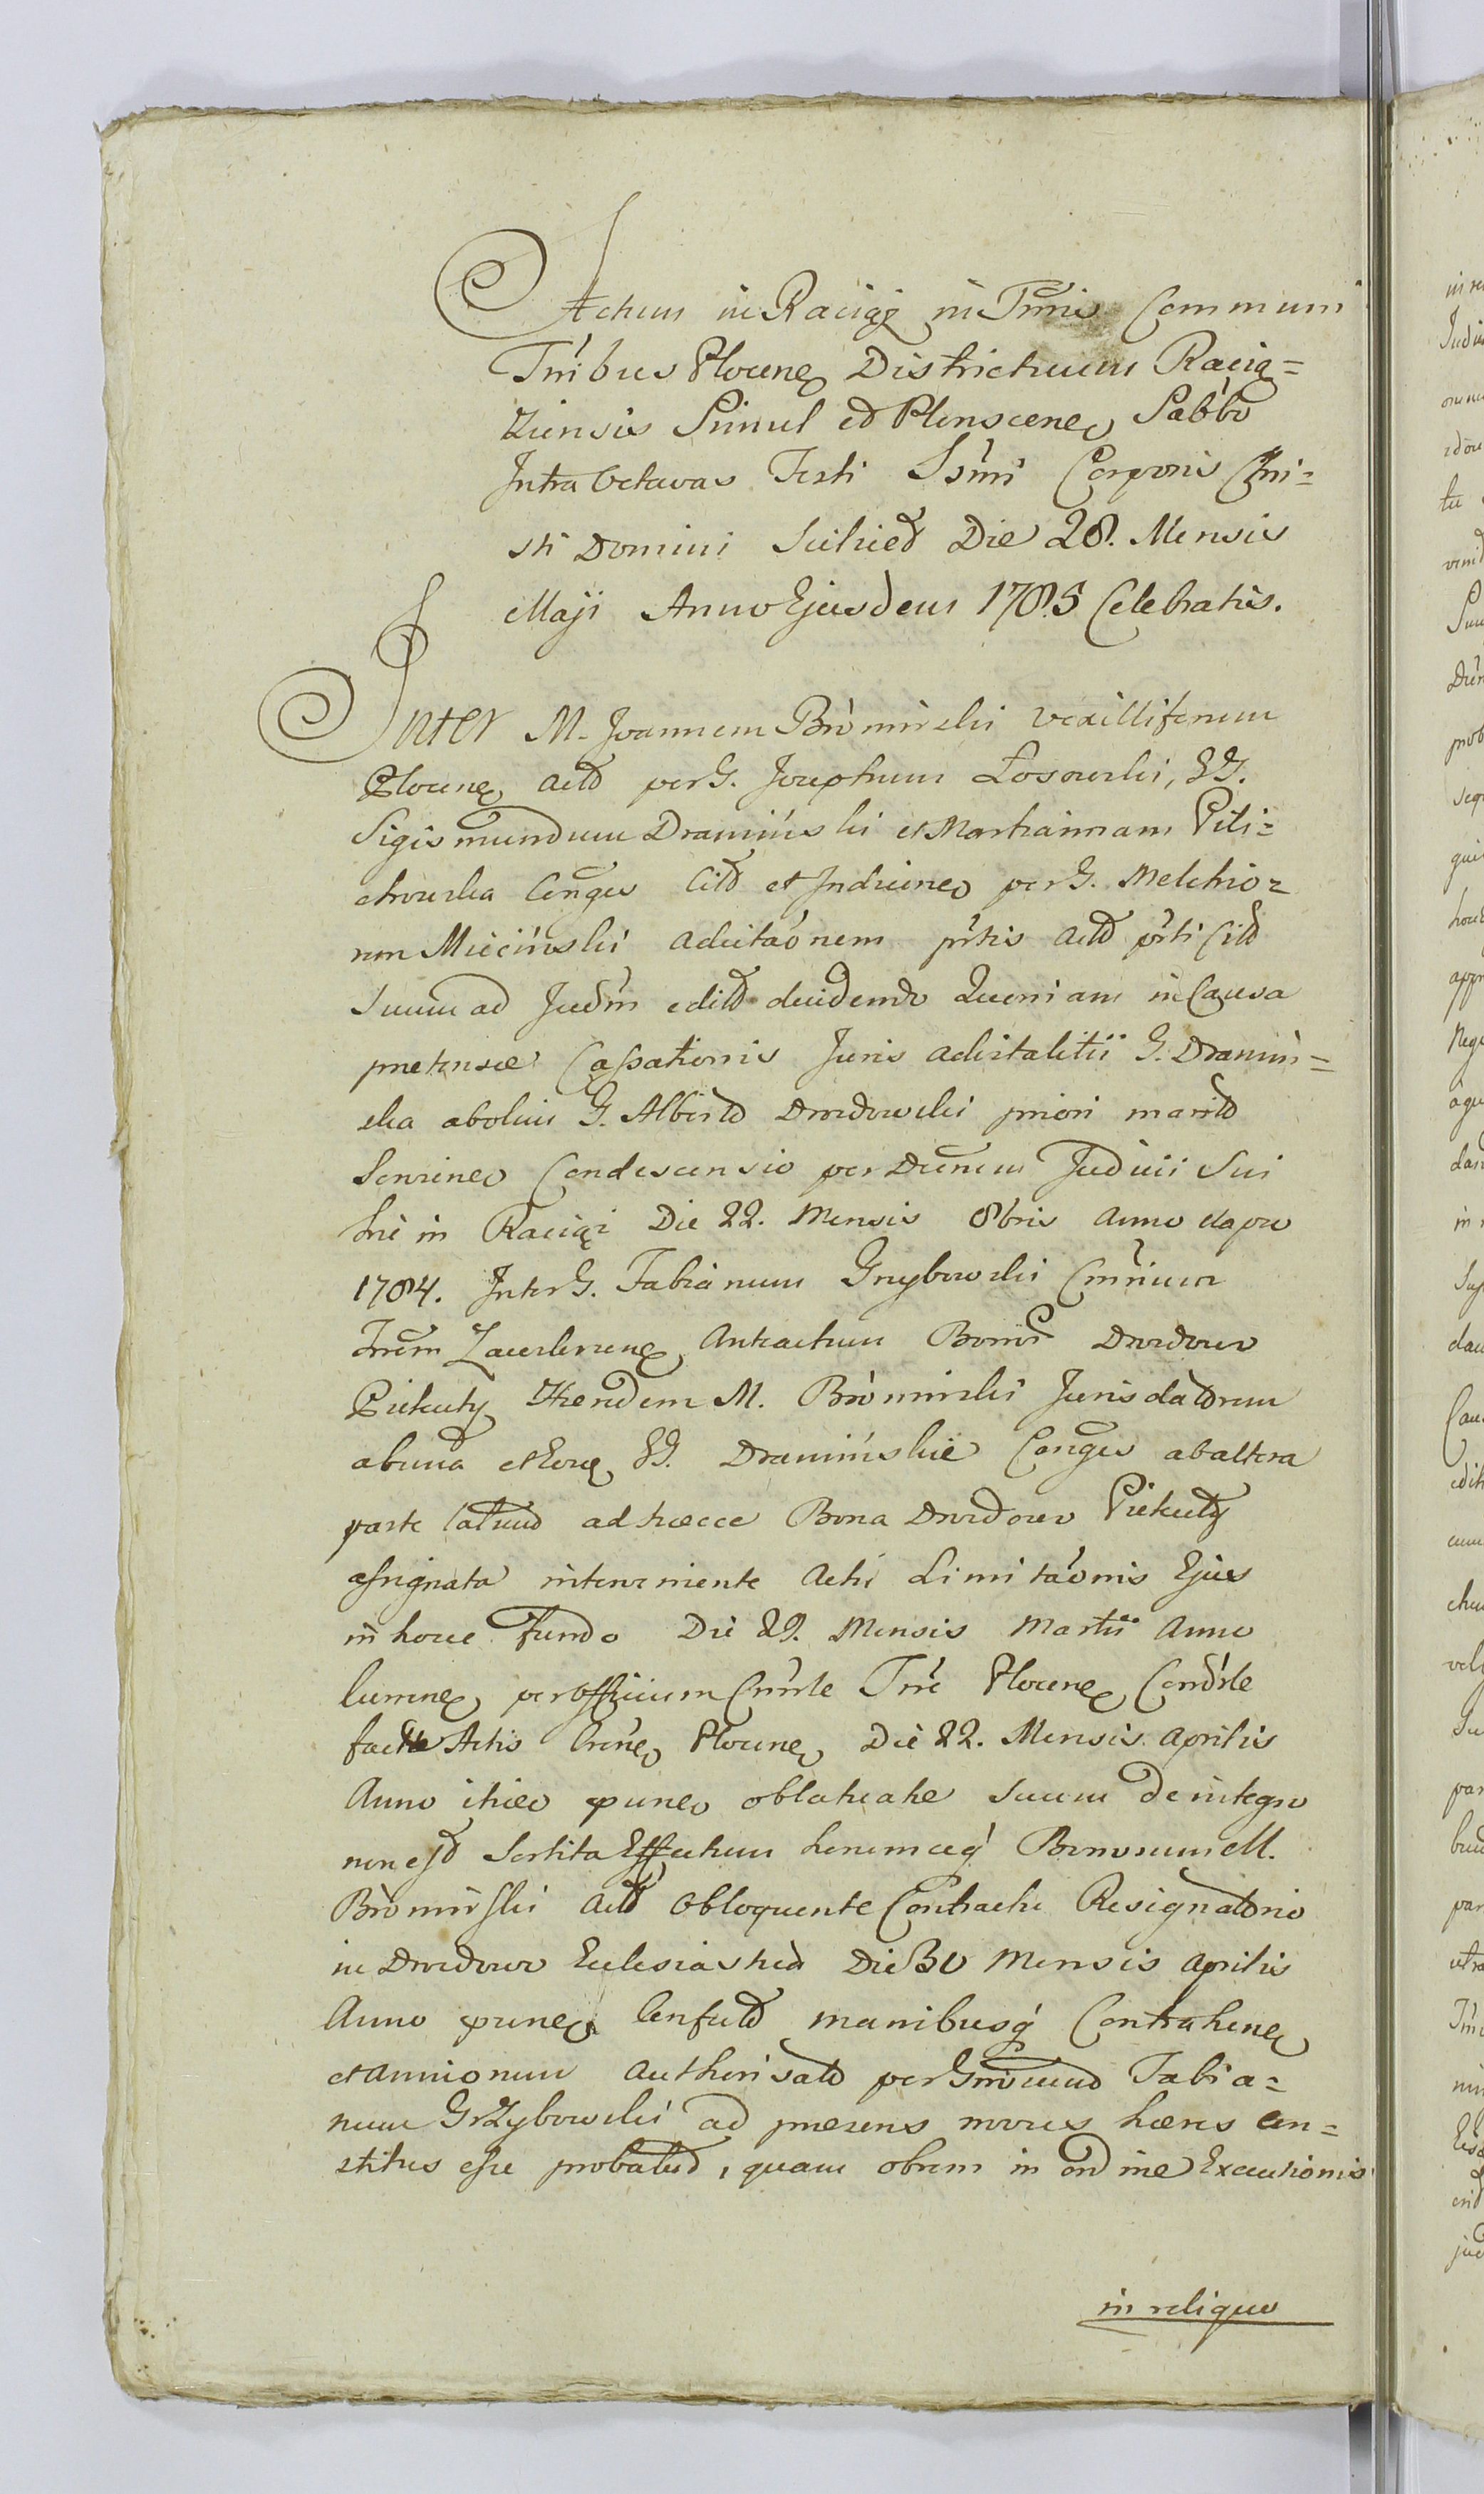 Actum in Raciąż in Trnis Commun
Trribus Plocen Districtuum Raciąz=
ziensis Simul et Plonscen Sabbo
Intra Octavas Festi Ssmi Corporis Chri=
sti Domini Scilicet Die 28. Mensis
Maji Anno Ejusdem 1785 Celebratis.
Inter M. Joannem Bromirski Vexilliferum
Plocen Act per G. Josephum Łosowski, GG.
Sigismundum Dramiński et Martiannam Pili=
chowska Conges Cit et Inducen per G. Melchio=
rem Mieciński Adcitaonem prtis Act prti Cit
Suum ad Judm edit decidendo Quoniam in Causa
pretensae Cassationis Juris advitalitii G. Dramiń=
ska ab olim G. Albert Drozdowski priori marit
Servien Condescensio per Decretum Judicii Sui
hic in Raciąż Die 22. Mensis 8bris Anno elapso
1784. Inter G. Fabianum Grzybowski
Zawskrzen Antiactum Bonor Drozdowo
Piekuty Haeredem M. Bromirski Juris datorem
ab una et Eosq GG. Dramińskie Conges ab altera
parte latum ad haecce Bona Drozdowo Piekuty
assignata interveniente Acti Limitaonis Ejus
in hocce fundo Die 29. Mensis Martii Anno
curren, per Officium Trre Plocen
factae Actis Plocen Die 22. Mensis Aprilis
Anno praesen oblatae Suum de integro
non est Sortita Effectum Bonorum M.
Bromirski Act Obloquente Contractu Resignatorio
in Drozdowo Ecclesiastica Die 30 Mensis Aprilis
Anno praesen Confect manibusq Contrahen
et Amicorum Authorisato per Fabia=
num Grzybowski ad praesens movus haeres con=
stitus esse probatus, quam obrem in ordine Executionis
in reliquo